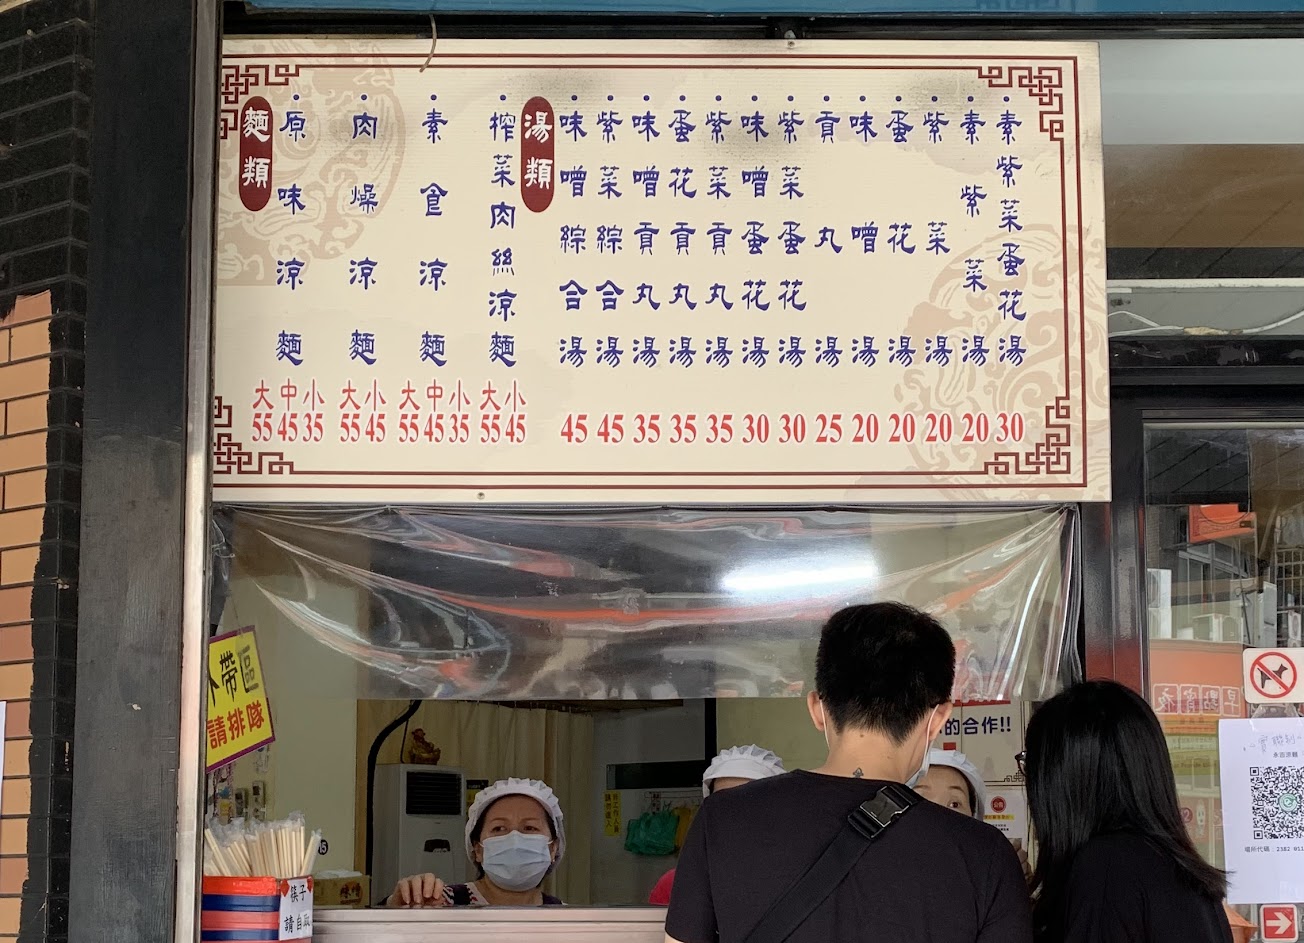 麵類
原味涼麵
大 中 小
55 45 35
肉燥涼麵
大 小
55 45
素食涼麵
大 中 小
55 45 35
榨菜肉絲涼麵
大 小
55 45
湯類
味噌綜合湯
45
紫菜綜合湯
45
味噌貢丸湯
35
蛋花貢丸湯
35
紫菜貢丸湯
35
味噌蛋花湯
30
紫菜蛋花湯
30
貢丸湯
25
味噌湯
20
蛋花湯
20
紫菜湯
20
素紫菜湯
20
素紫菜蛋花湯
30
帶區
請排隊
的合作!!
筷子
請自取
早點宵夜
永田涼麵